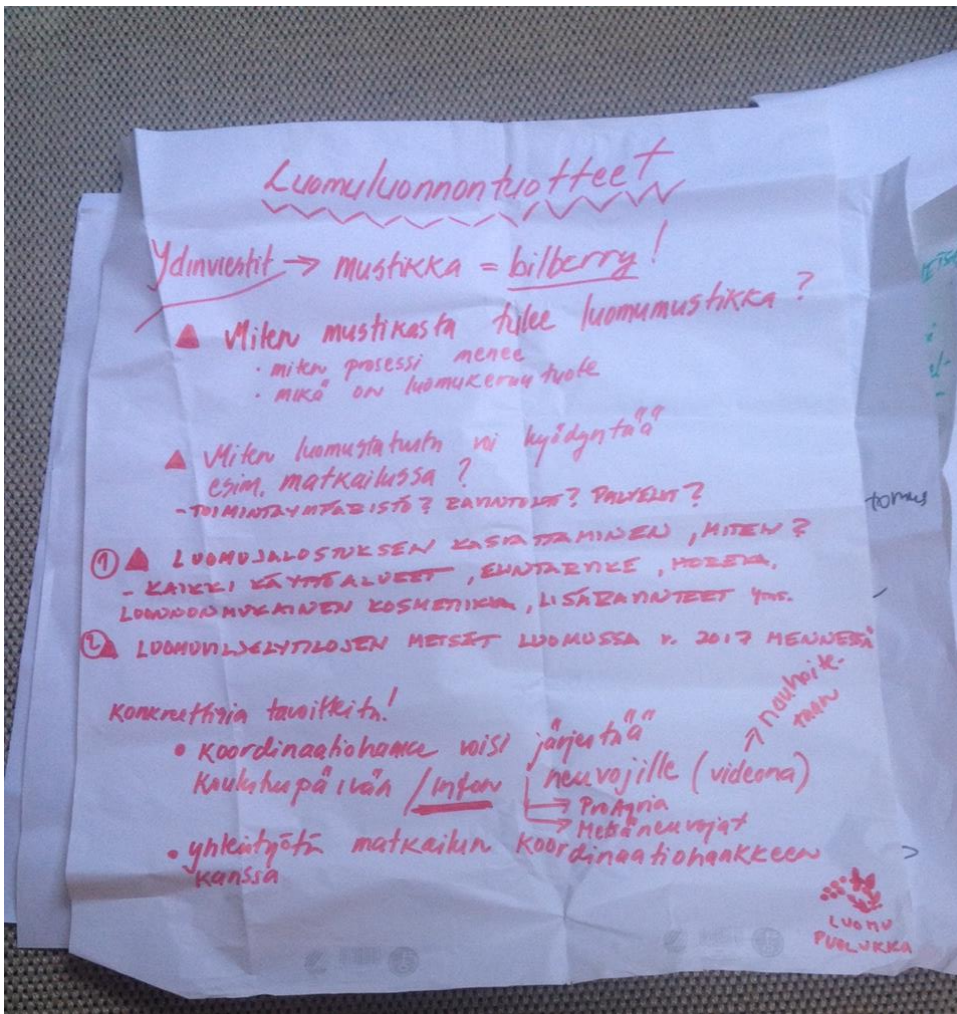 Luomuluonnontuotteet
Ydinviestit → mustikka = bilberry!
▲ Miten mustikasta tulee luomumustikka?
· miten prosessi menee
· mikä on luomukeruutuote
▲ Miten luomustatusta voi hyödyntää
esim. matkailussa?
- TOIMINTAYMPÄRISTÖ? RAVINTOLAT? PALVELUT?
① ▲ LUOMUJALOSTUKSEN KASVATTAMINEN, MITEN?
- KAIKKI KÄYTTÖALUEET, ELINTARVIKE, HORECA,
LUONNONMUKAINEN KOSMETIIKKA, LISÄRAVINTEET yms.
② ▲ LUOMUVILJELYTILOJEN METSÄT LUOMUSSA v. 2017 MENNESSÄ
Konkreettisia tavoitteita!
• Koordinaatiohanke voisi järjestää
Koulutuspäivän / Infon neuvojille (videona)
↗ nauhoite-
taan
→ ProAgria
→ Metsäneuvojat
• yhteistyötä matkailun koordinaatiohankkeen
kanssa
LUOMU
PUOLUKKA
tomus